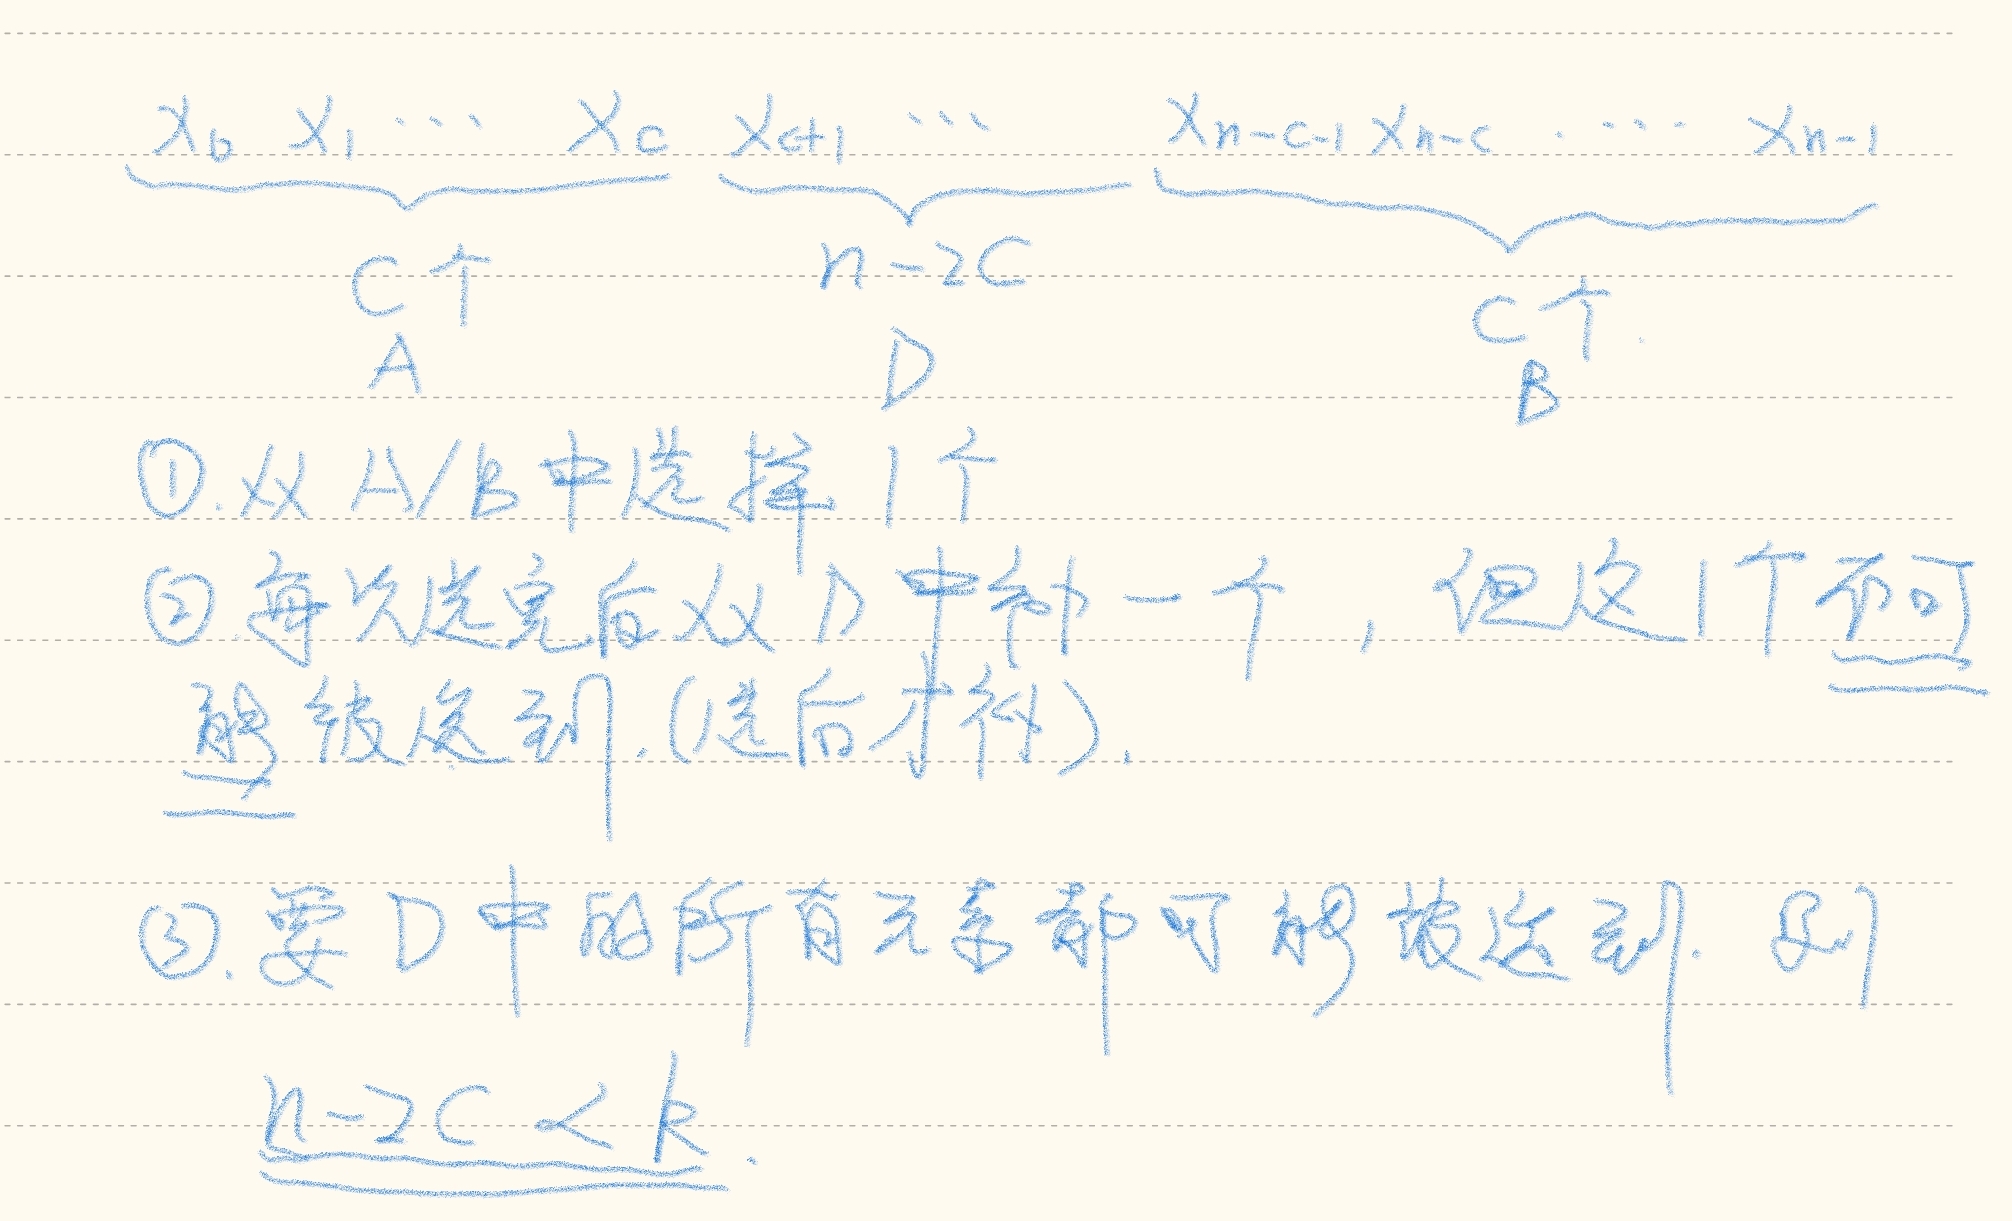 x₀ x₁ ··· x_c x_{c+1} ··· x_{n-c-1} x_{n-c} ···· x_{n-1}
C个 n-2C C个.
A D B
①.从 A/B 中选择 1个
② 每次选完后从 D 中补一个,但这1个不可
能被选到.(选后才补).
③.要 D 中的所有元素都可能被选到. 则
n-2C < k.